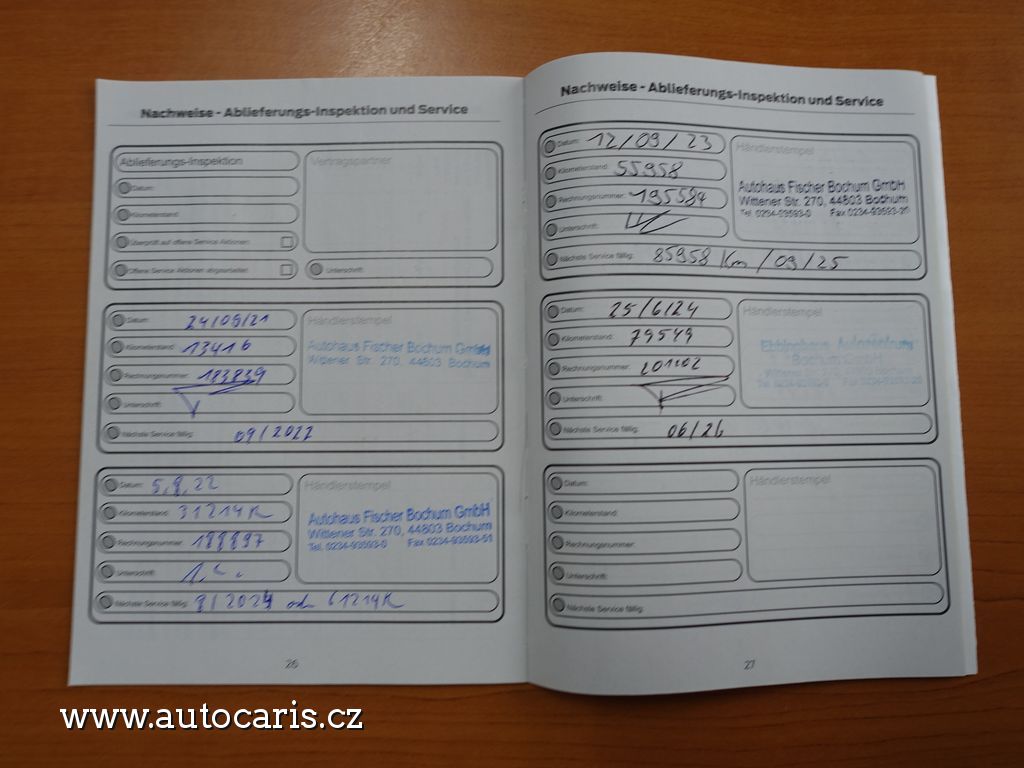 Nachweise - Ablieferungs-Inspektion und Service
Ablieferungs-Inspektion
Vertragspartner
Datum:
Kilometerstand:
Überprüft auf offene Service Aktionen:
Offene Service Aktionen abgearbeitet:
Unterschrift:
Datum: 24/09/21
Kilometerstand: 13416
Rechnungsnummer: 183839
Unterschrift:
Nächste Service fällig: 09/2022
Händlerstempel
Autohaus Fischer Bochum GmbH
Wittener Str. 270, 44803 Bochum
Datum: 5.8.22
Kilometerstand: 31214K
Rechnungsnummer: 188897
Unterschrift:
Nächste Service fällig: 8/2024 od. 61214K
Händlerstempel
Autohaus Fischer Bochum GmbH
Wittener Str. 270, 44803 Bochum
Tel. 0234-93593-0 Fax 0234-93593-51
26
Nachweise - Ablieferungs-Inspektion und Service
Datum: 12/09/23
Kilometerstand: 55958
Rechnungsnummer: 195584
Unterschrift:
Nächste Service fällig: 85958 Km/09/25
Händlerstempel
Autohaus Fischer Bochum GmbH
Wittener Str. 270, 44803 Bochum
Tel. 0234-93593-0 Fax 0234-93593-20
Datum: 25/6/24
Kilometerstand: 79549
Rechnungsnummer: 201102
Unterschrift:
Nächste Service fällig: 06/26
Händlerstempel
Ebbinghaus Autozentrum
Bochum GmbH
Wittener Str. 270, 44803 Bochum
Datum:
Kilometerstand:
Rechnungsnummer:
Unterschrift:
Nächste Service fällig:
Händlerstempel
27
www.autocaris.cz